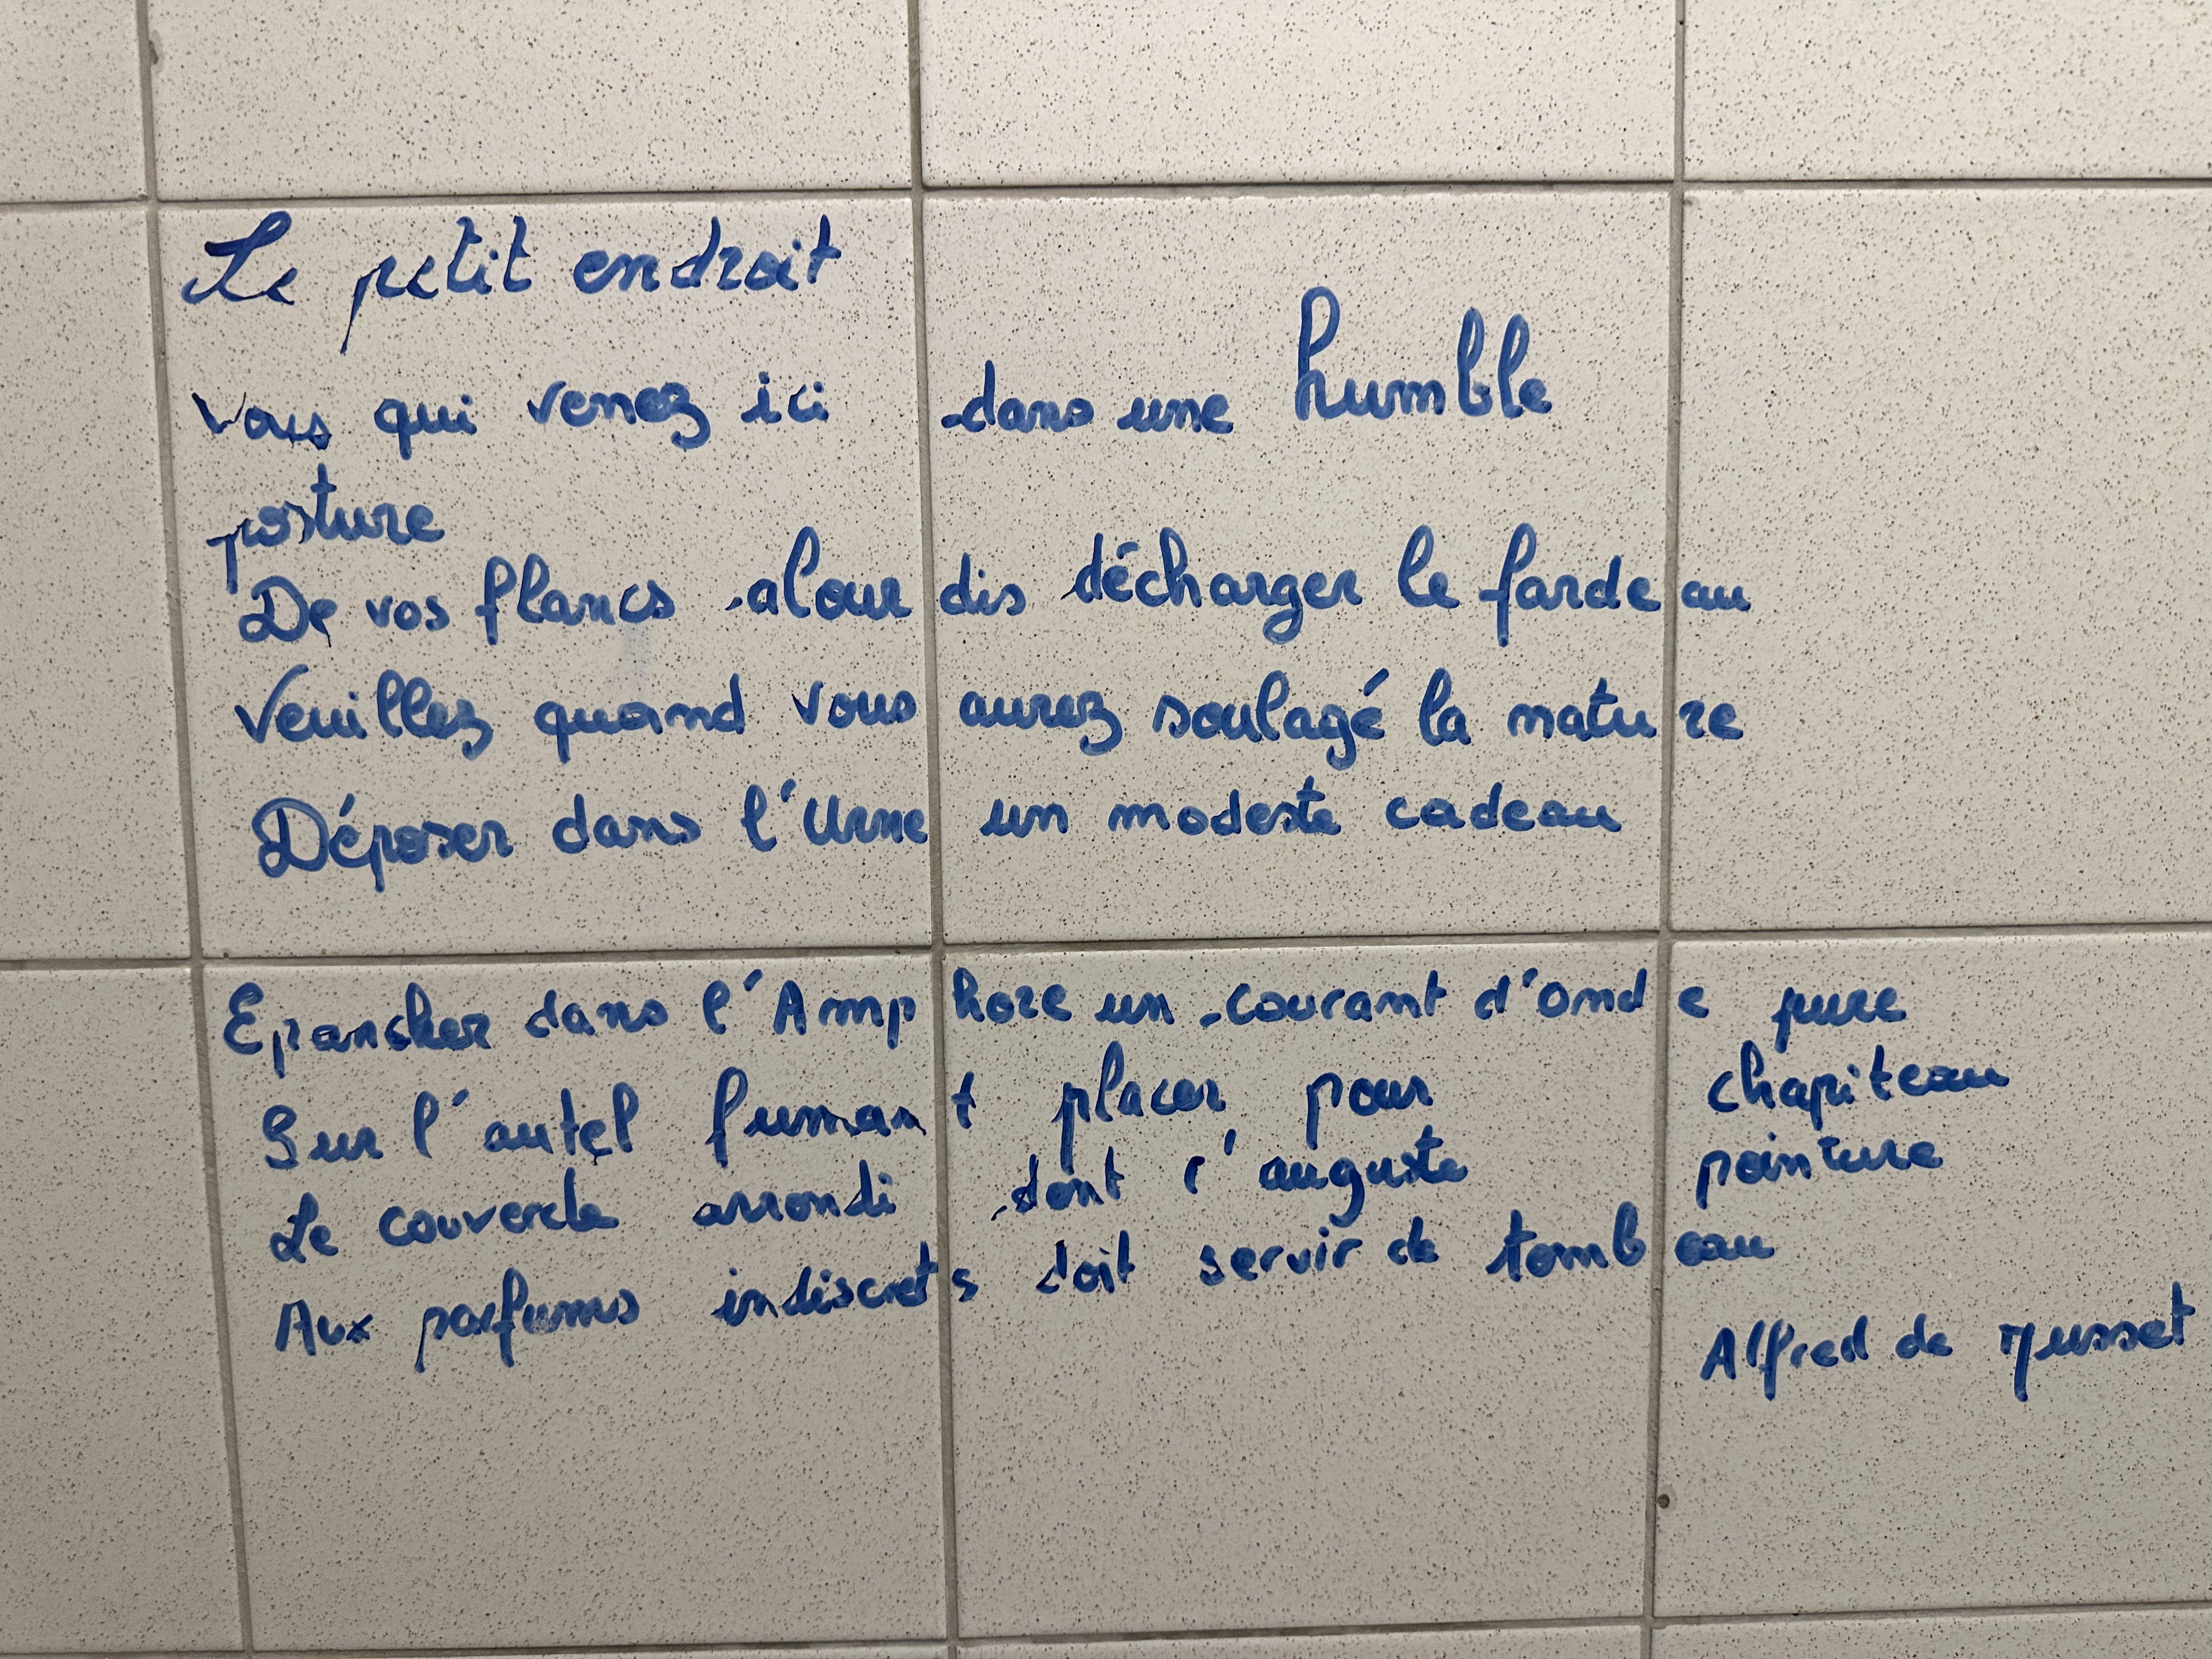 Le petit endroit
Vous qui venez ici dans une humble
posture
De vos flancs alourdis décharger le fardeau
Veuillez quand vous aurez soulagé la nature
Déposer dans l'Urne un modeste cadeau
Epancher dans l'Amphore un courant d'onde pure
Sur l'autel fumant placer pour chapiteau
Le couvercle arrondi dont l'auguste pointure
Aux parfums indiscrets doit servir de tombeau
Alfred de Musset